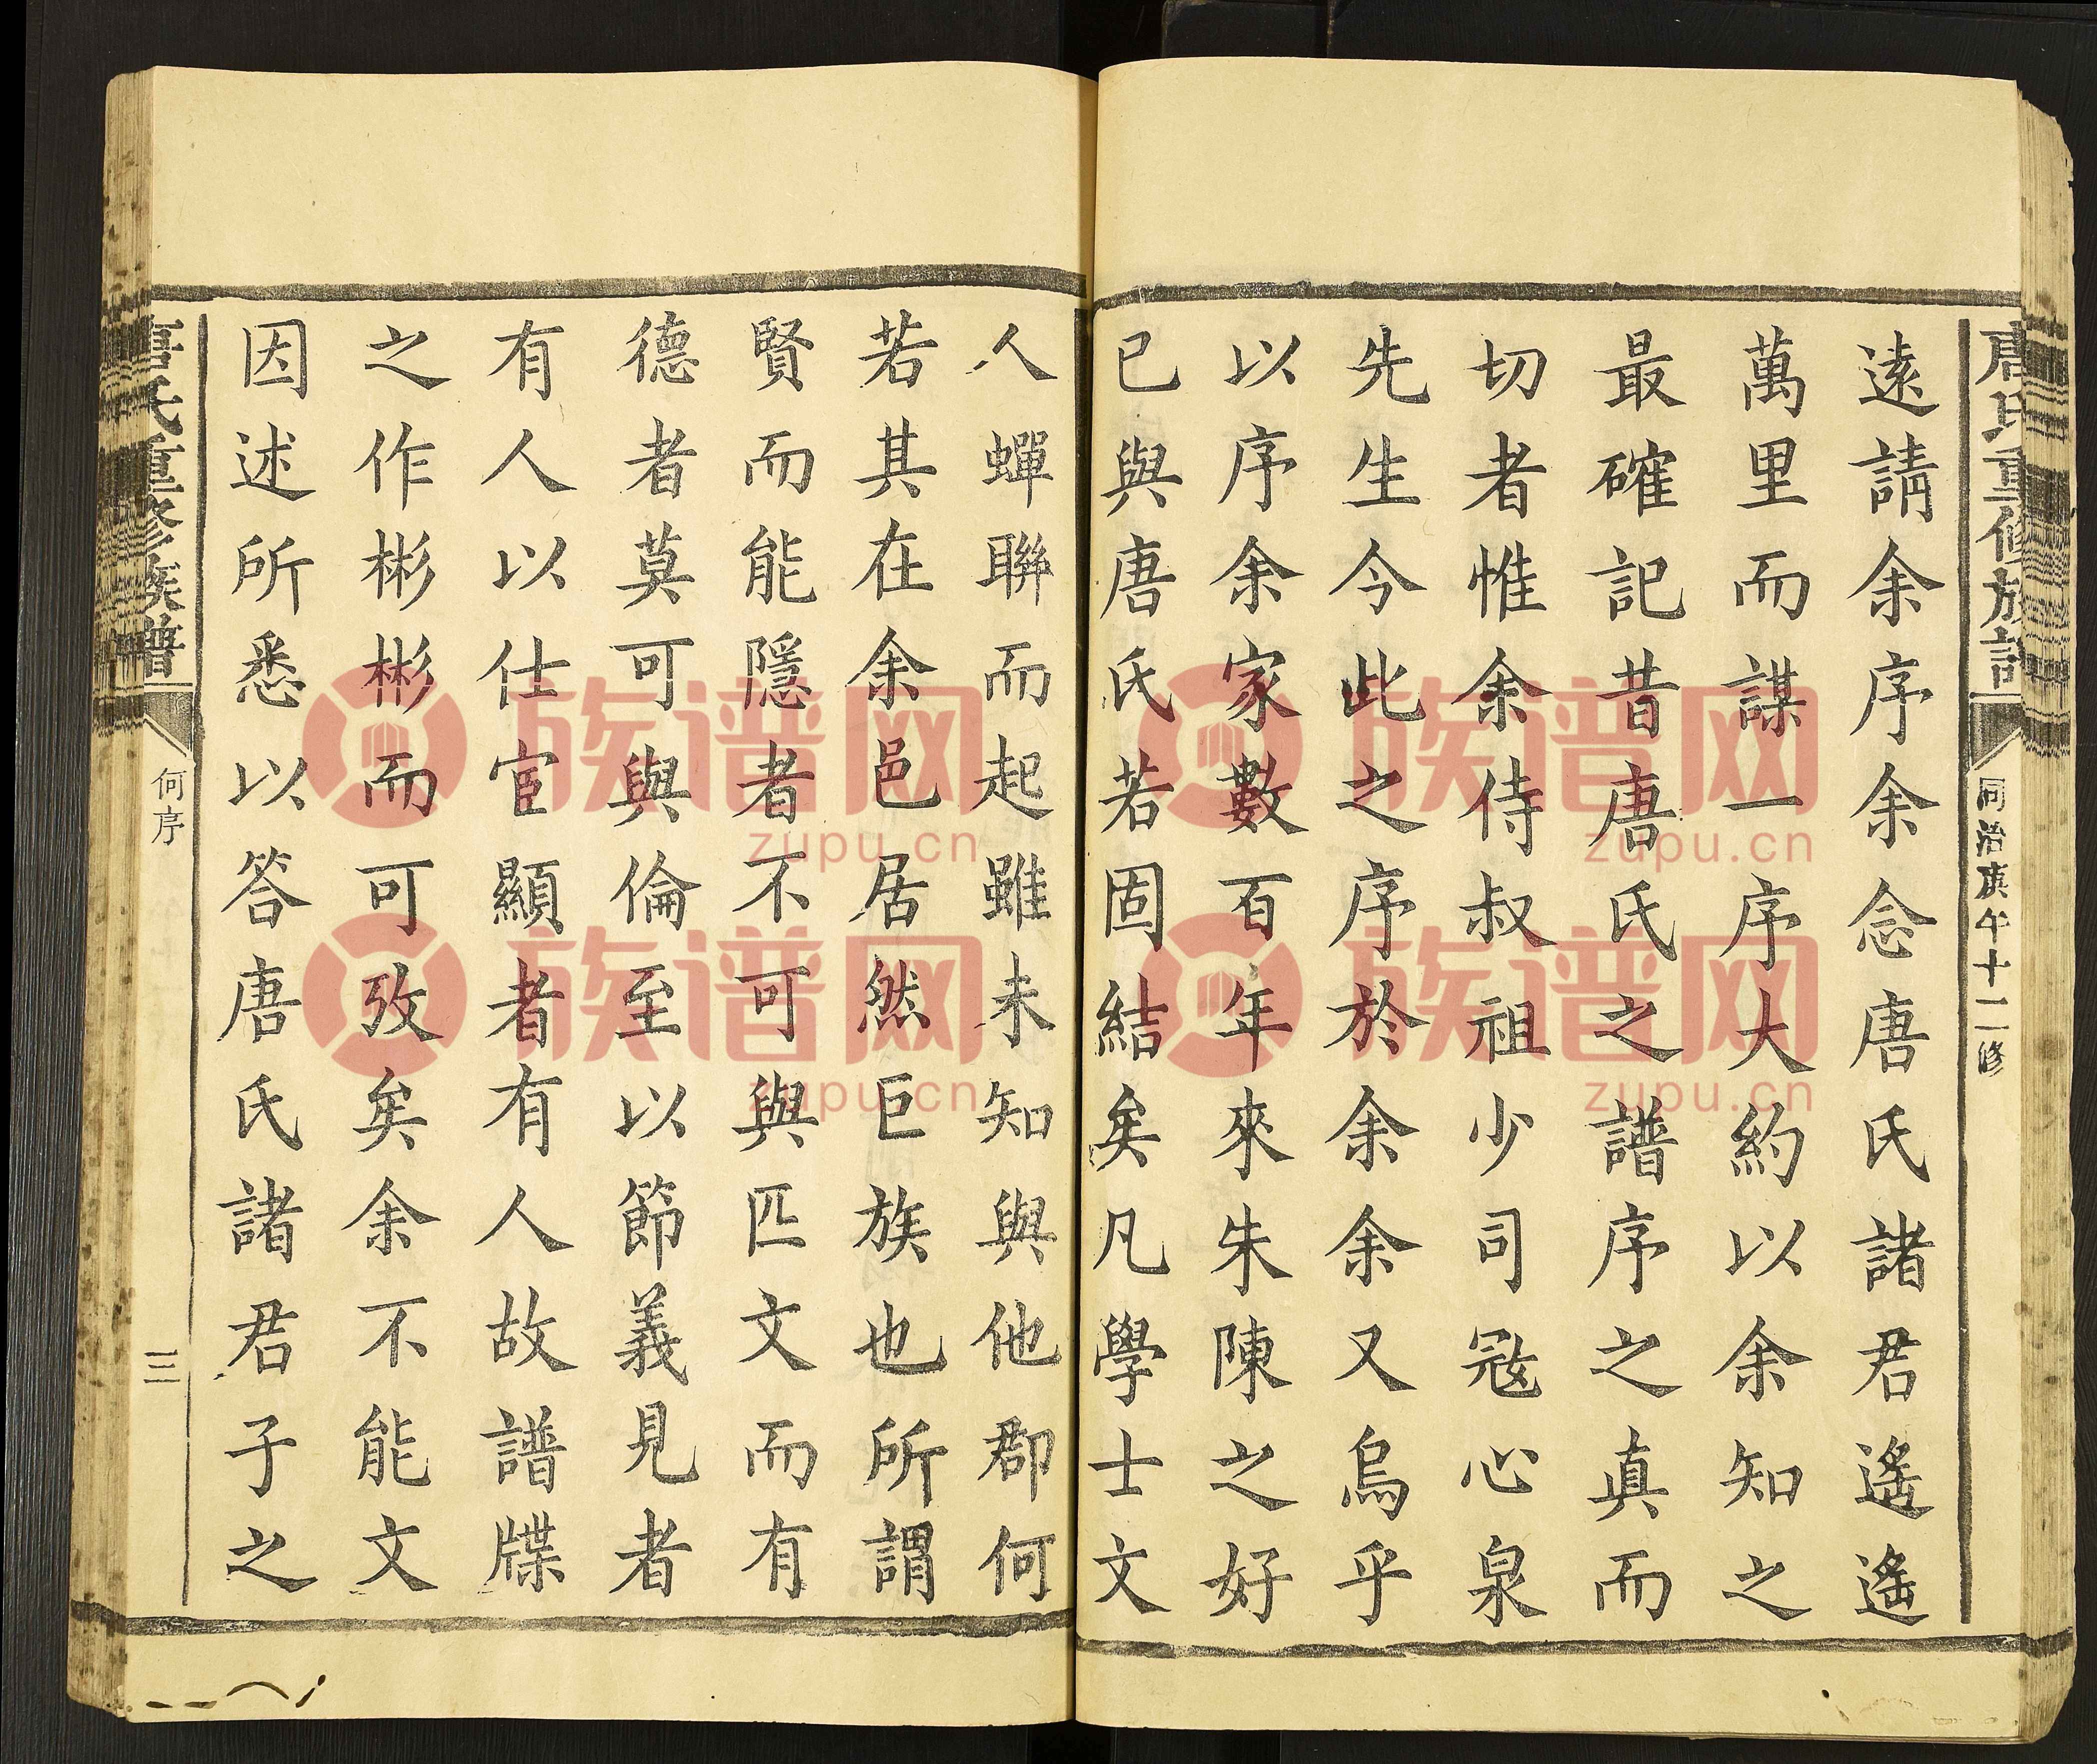 唐氏重修族譜
同治庚午十二修
遠請余序余念唐氏諸君遙遙
萬里而謀一序大約以余知之
最確記昔唐氏之譜序之真而
切者惟余侍叔祖少司寇心泉
先生今此之序於余余又烏乎
以序余家數百年來朱陳之好
已與唐氏若固結矣凡學士文
人蟬聯而起雖未知與他郡何
若其在余邑居然巨族也所謂
賢而能隱者不可與匹文而有
德者莫可與倫至以節義見者
有人以仕宦顯者有人故譜牒
之作彬彬而可攷矣余不能文
因述所悉以答唐氏諸君子之
唐氏重修族譜
何序
三
族谱网
zupu.cn
族谱网
zupu.cn
族谱网
zupu.cn
族谱网
zupu.cn